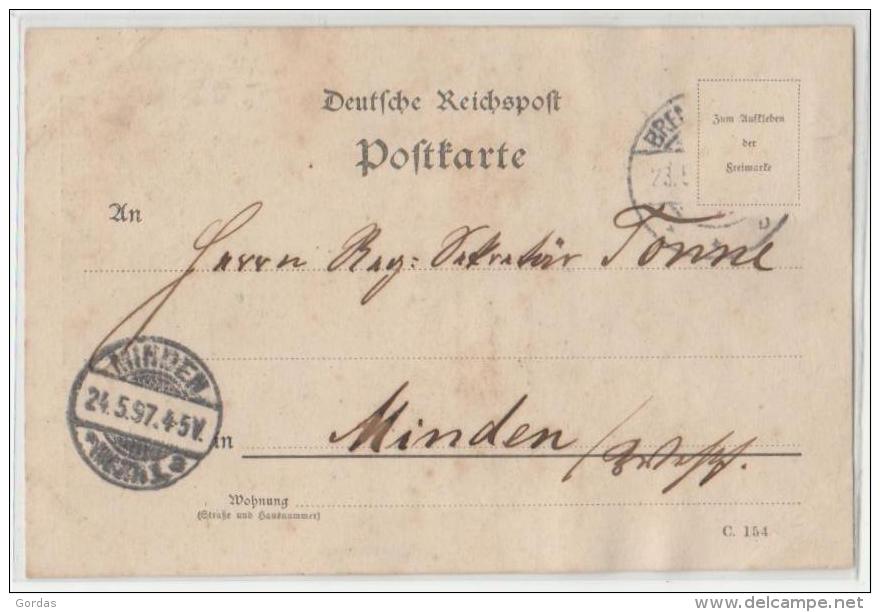 Deutsche Reichspost
Postkarte
Zum Aufkleben
der
Freimarke
BREM
23.5
D
An
Herrn Reg: Sekretär Tonne
MINDEN
24.5.97.4-5V.
in Minden /Westf.
Wohnung
(Straße und Hausnummer)
C. 154
Gordas
www.delcampe.net